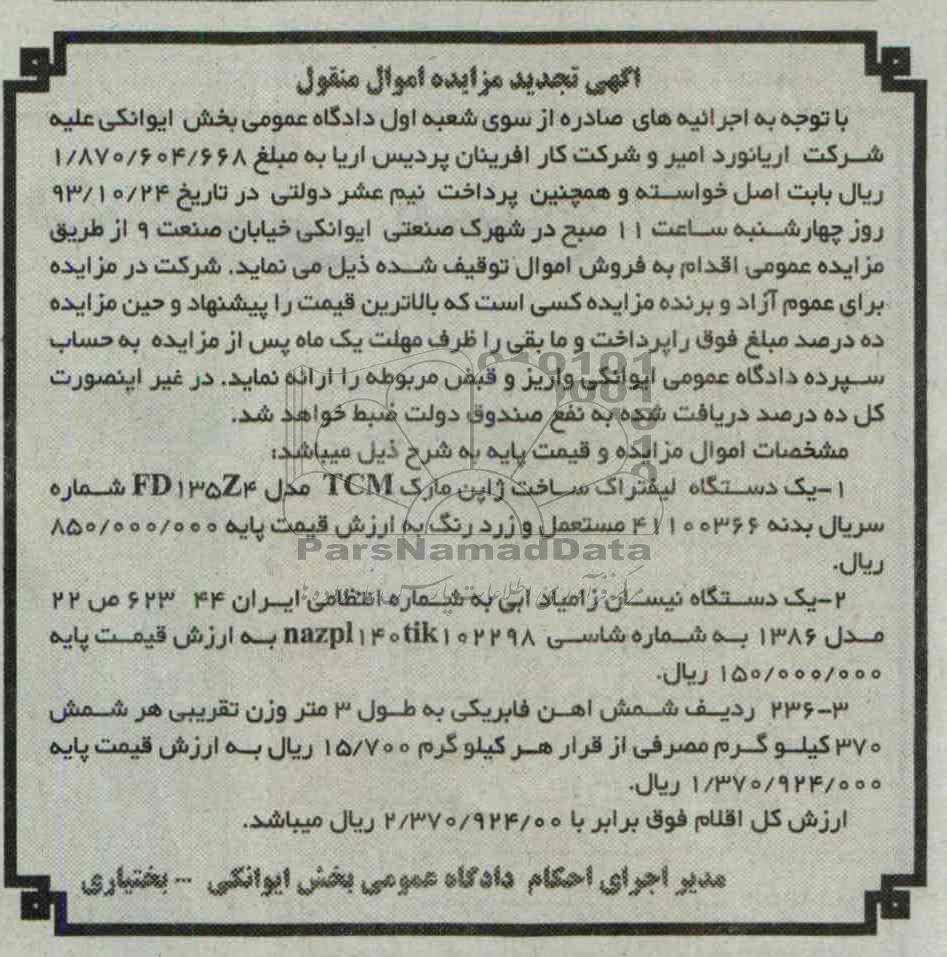 اگهی تجدید مزایده اموال منقول
با توجه به اجرائیه های صادره از سوی شعبه اول دادگاه عمومی بخش ایوانکی علیه
شرکت اریانورد امیر و شرکت کار افرینان پردیس اریا به مبلغ ۱/۸۷۰/۶۰۴/۶۶۸
ریال بابت اصل خواسته و همچنین پرداخت نیم عشر دولتی در تاریخ ۹۳/۱۰/۲۴
روز چهارشنبه ساعت ۱۱ صبح در شهرک صنعتی ایوانکی خیابان صنعت ۹ از طریق
مزایده عمومی اقدام به فروش اموال توقیف شده ذیل می نماید. شرکت در مزایده
برای عموم آزاد و برنده مزایده کسی است که بالاترین قیمت را پیشنهاد و حین مزایده
ده درصد مبلغ فوق راپرداخت و ما بقی را ظرف مهلت یک ماه پس از مزایده به حساب
سپرده دادگاه عمومی ایوانکی واریز و قبض مربوطه را ارائه نماید. در غیر اینصورت
کل ده درصد دریافت شده به نفع صندوق دولت ضبط خواهد شد.
مشخصات اموال مزایده و قیمت پایه به شرح ذیل میباشد:
۱-یک دستگاه لیفتراک ساخت ژاپن مارک TCM مدل FD۱۳۵Z۴ شماره
سریال بدنه ۴۱۱۰۰۳۶۶ مستعمل و زرد رنگ به ارزش قیمت پایه ۸۵۰/۰۰۰/۰۰۰
ریال.
ParsNamadData
۲-یک دستگاه نیسان زامیاد ابی به شماره انتظامی ایران ۴۴ ۶۲۳ ص ۲۲
مدل ۱۳۸۶ به شماره شاسی nazpl۱۴۰tik۱۰۲۲۹۸ به ارزش قیمت پایه
۱۵۰/۰۰۰/۰۰۰ ریال.
۳-۲۳۶ ردیف شمش اهن فابریکی به طول ۳ متر وزن تقریبی هر شمش
۳۷۰ کیلو گرم مصرفی از قرار هر کیلو گرم ۱۵/۷۰۰ ریال به ارزش قیمت پایه
۱/۳۷۰/۹۲۴/۰۰۰ ریال.
ارزش کل اقلام فوق برابر با ۲/۳۷۰/۹۲۴/۰۰ ریال میباشد.
مدیر اجرای احکام دادگاه عمومی بخش ایوانکی -- بختیاری